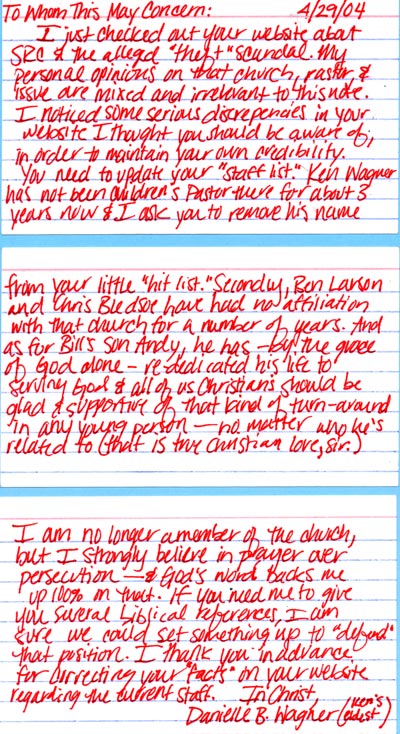 To Whom This May Concern: 4/29/04
I just checked out your website about
SRC & the alleged "theft" scandal. My
personal opinions on that church, pastor, &
issue are mixed and irrelevant to this note.
I noticed some serious discrepencies in your
website I thought you should be aware of,
in order to maintain your own credibility.
You need to update your "staff list." Ken Wagner
has not been Children's Pastor there for about 3
years now & I ask you to remove his name
from your little "hit list." Secondly, Ben Larson
and Chris Bledsoe have had no affiliation
with that church for a number of years. And
as for Bill's son Andy, he has - by the grace
of God alone - re-dedicated his life to
serving God & all of us Christians should be
glad & supportive of that kind of turn-around
in any young person - no matter who he's
related to (that is true Christian love, sir.)
I am no longer a member of the church,
but I strongly believe in prayer over
persecution - & God's word backs me
up 100% on that. If you need me to give
you several biblical references, I am
sure we could set something up to "defend"
that position. I thank you in advance
for correcting your "facts" on your website
regarding the current staff. In Christ,
Danielle B. Wagner (Ken's eldest)